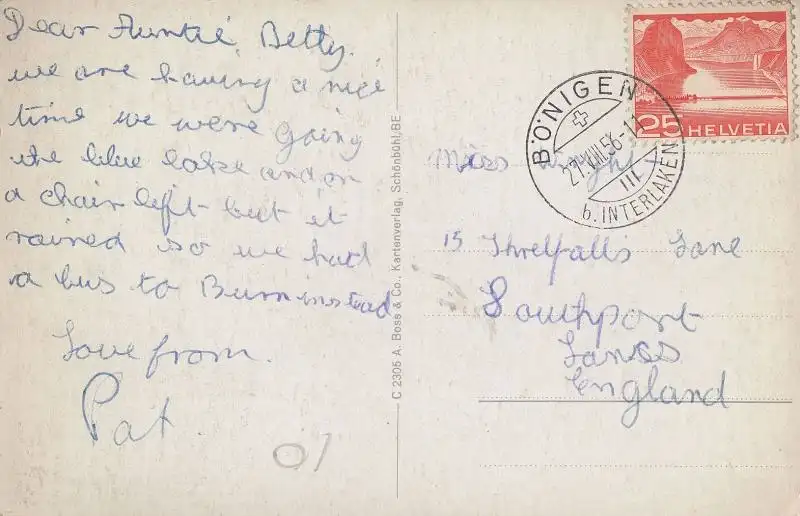 Dear Auntie, Betty.
we are having a nice
time we were going
the blue lake and on
a chair left but it
rained so we had
a bus to Burn instead
Love from.
Pat.
01
C 2305 A. Boss & Co., Kartenverlag, Schönbühl/BE
BÖNIGEN
21.VIII.56-11
III
b. INTERLAKEN
25 HELVETIA
Miss Wright
15 Threlfalls Lane
Southport
Lancs
England